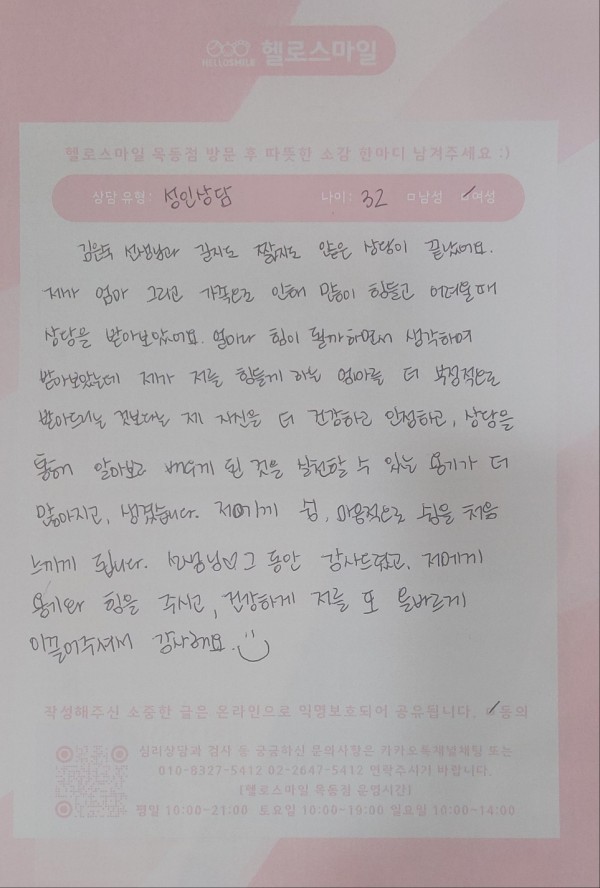 HELLOSMILE 헬로스마일
헬로스마일 목동점 방문 후 따뜻한 소감 한마디 남겨주세요 :)
상담 유형: 성인상담 나이: 32 □남성 ☑여성
김은숙 선생님과 길지도 짧지도 않은 상담이 끝났어요.
제가 엄마 그리고 가족으로 인해 많이 힘들고 어려울때
상담을 받아보았어요. 얼마나 힘이 될까하면서 생각하여
받아보았는데 제가 저를 힘들게 하는 엄마를 더 부정적으로
받아드리는 것보다는 제 자신을 더 건강하고 인정하고, 상담을
통해 알아보고 배우게 된 것을 실천할 수 있는 용기가 더
많아지고, 생겼습니다. 저에게 쉼, 마음적으로 쉼을 처음
느끼게 됩니다. 선생님♡ 그 동안 감사드렸고, 저에게
용기와 힘을 주시고, 건강하게 저를 또 올바르게
이끌어주셔서 감사해요. :)
작성해주신 소중한 글은 온라인으로 익명보호되어 공유됩니다. ☑동의
심리상담과 검사 등 궁금하신 문의사항은 카카오톡채널채팅 또는
010-8327-5412 02-2647-5412 연락주시기 바랍니다.
[헬로스마일 목동점 운영시간]
평일 10:00~21:00 토요일 10:00~19:00 일요일 10:00~14:00